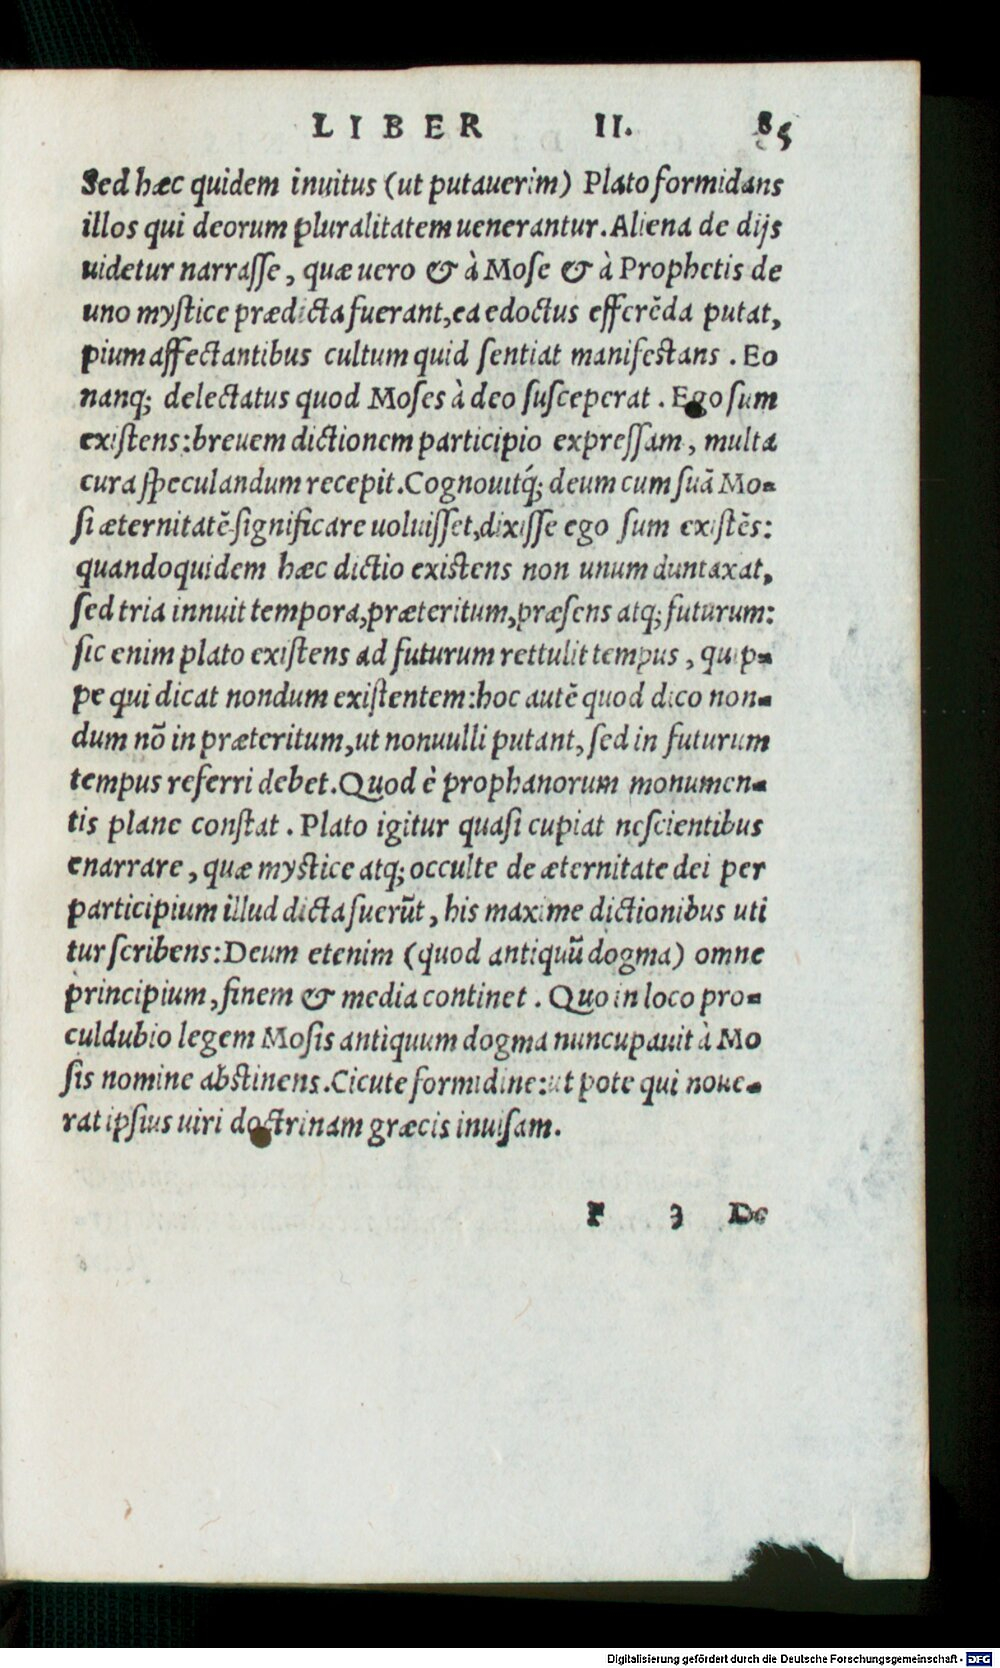 LIBER II. 85
Sed hæc quidem inuitus (ut putauerim) Plato formidans
illos qui deorum pluralitatem uenerantur. Aliena de dijs
uidetur narraſſe, quæ uero & à Moſe & à Prophetis de
uno myſtice prædicta fuerant, ea edoctus efferẽda putat,
pium affectantibus cultum quid ſentiat manifestans. Eo
nanq; delectatus quod Moſes à deo ſuſceperat. Ego ſum
exiſtens: breuem dictionem participio expreſſam, multa
cura ſpeculandum recepit. Cognouitq́; deum cum ſuã Mo-
ſi æternitatẽ ſignificare uoluiſſet, dixiſſe ego ſum exiſtẽs:
quandoquidem hæc dictio existens non unum duntaxat,
ſed tria innuit tempora, præteritum, præſens atq; futurum:
ſic enim plato exiſtens ad futurum rettulit tempus, quip-
pe qui dicat nondum exiſtentem: hoc autẽ quod dico non-
dum nõ in præteritum, ut nonuulli putant, ſed in futurum
tempus referri debet. Quod è prophanorum monumen-
tis plane conſtat. Plato igitur quaſi cupiat neſcientibus
enarrare, quæ mystice atq; occulte de æternitate dei per
participium illud dicta fuerũt, his maxime dictionibus uti
tur ſcribens: Deum etenim (quod antiquũ dogma) omne
principium, finem & media continet. Quo in loco pro-
culdubio legem Moſis antiquum dogma nuncupauit à Mo
ſis nomine abstinens. Cicute formidine: ut pote qui noue-
rat ipſius uiri doctrinam græcis inuiſam.
F 3 De
Digitalisierung gefördert durch die Deutsche Forschungsgemeinschaft - DFG